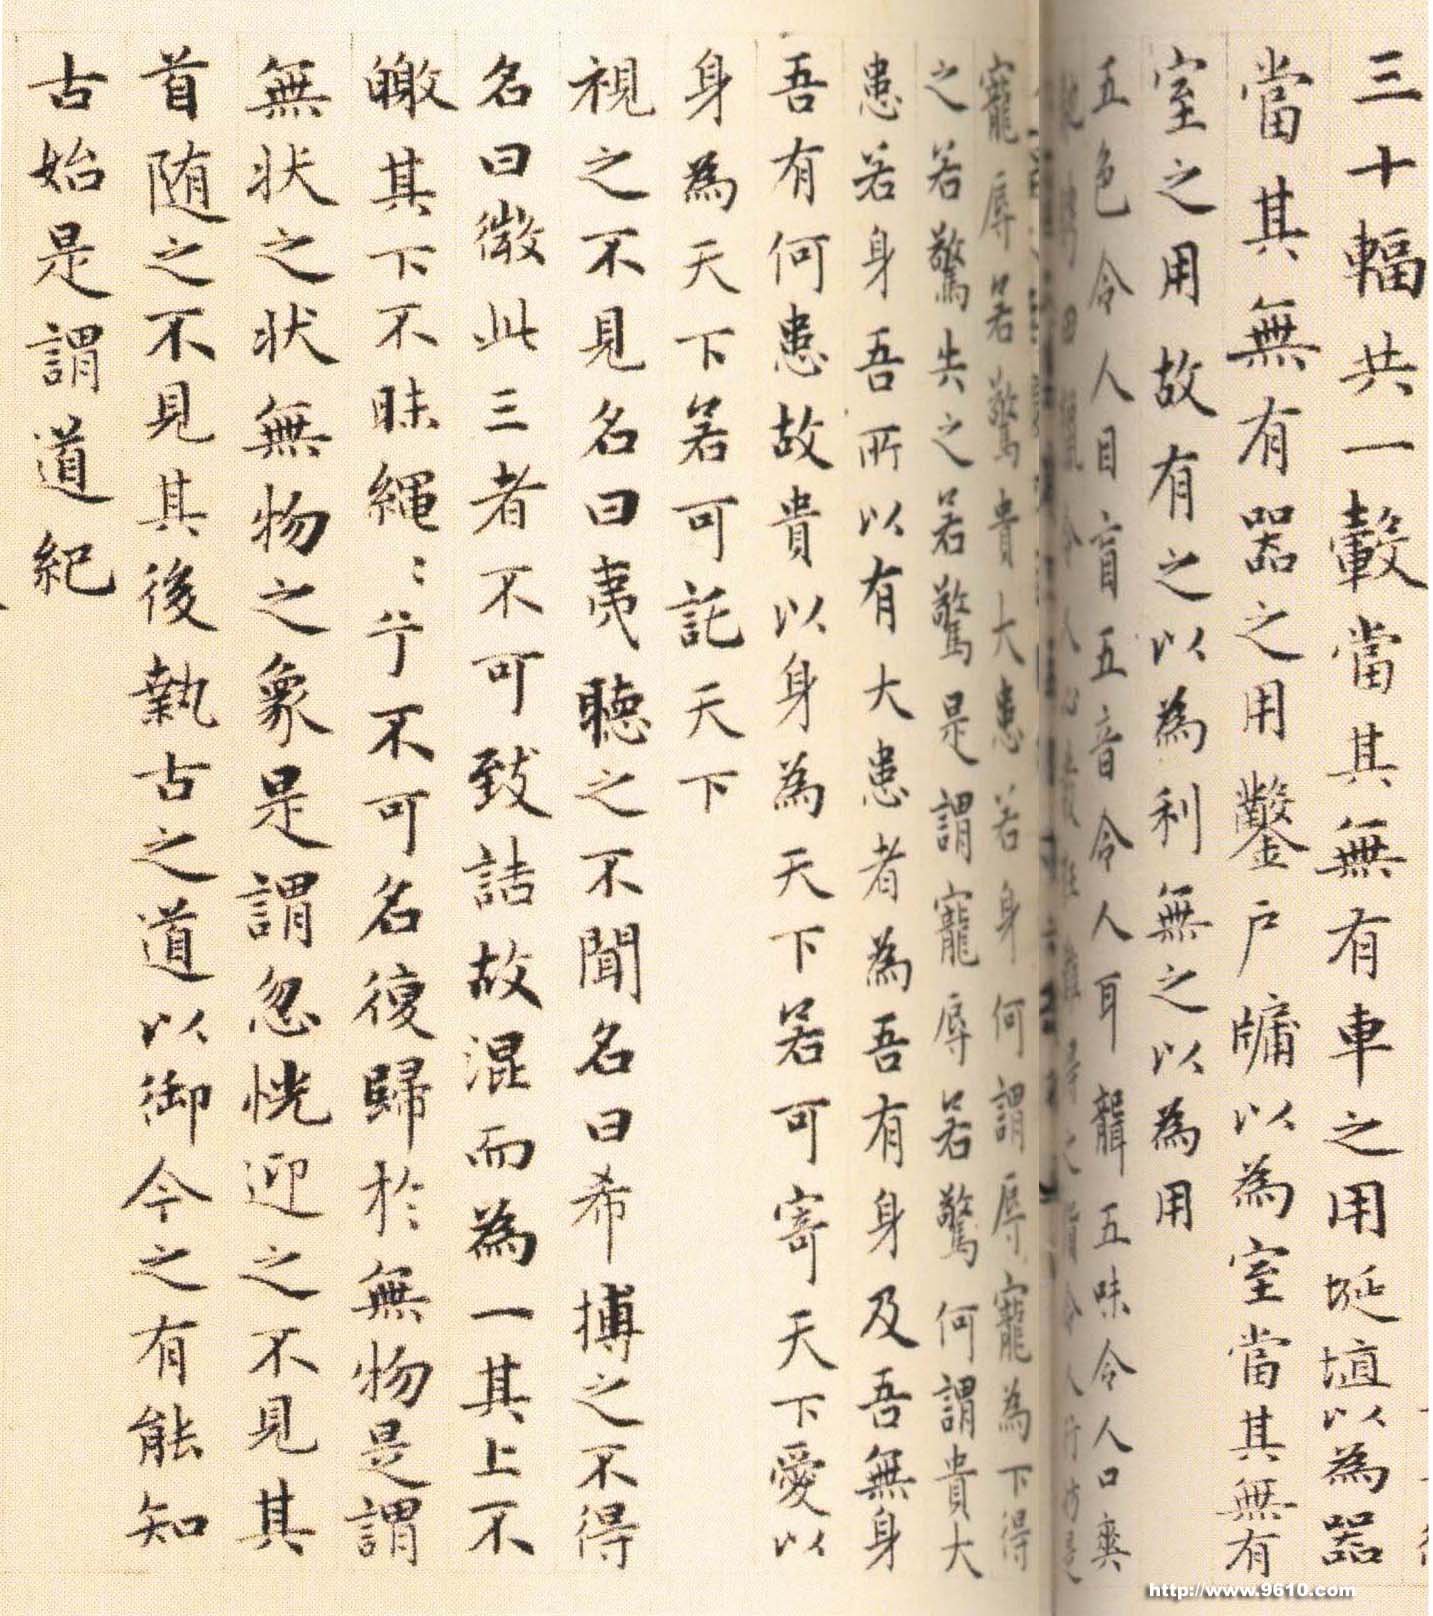 三十輻共一轂當其無有車之用埏埴以為器
當其無有器之用鑿戶牖以為室當其無有
室之用故有之以為利無之以為用
五色令人目盲五音令人耳聾五味令人口爽
馳騁田獵令人心發狂難得之貨令人行妨是
寵辱若驚貴大患若身何謂辱寵為下得
之若驚失之若驚是謂寵辱若驚何謂貴大
患若身吾所以有大患者為吾有身及吾無身
吾有何患故貴以身為天下若可寄天下愛以
身為天下若可託天下
視之不見名曰夷聽之不聞名曰希搏之不得
名曰微此三者不可致詰故混而為一其上不
皦其下不昧繩〻兮不可名復歸於無物是謂
無状之状無物之象是謂忽恍迎之不見其
首随之不見其後執古之道以御今之有能知
古始是謂道紀
http://www.9610.com